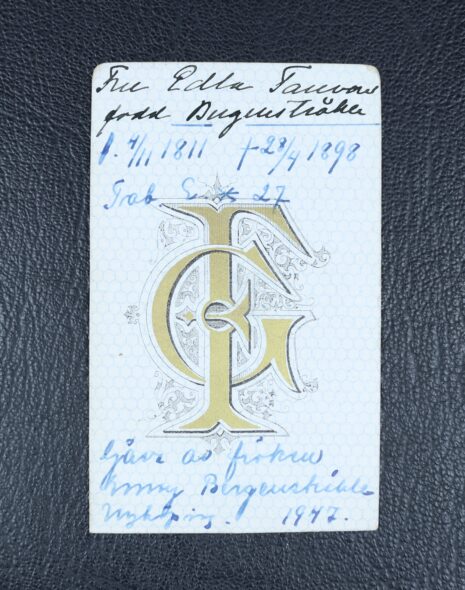 Fru Edla Tauvon
född Bergenstråhle
f. 4/11 1811 † 28/4 1898
Tab. 27
GF
Gåva av fröken
Emmy Bergenstråhle
Nyköping. 1947.